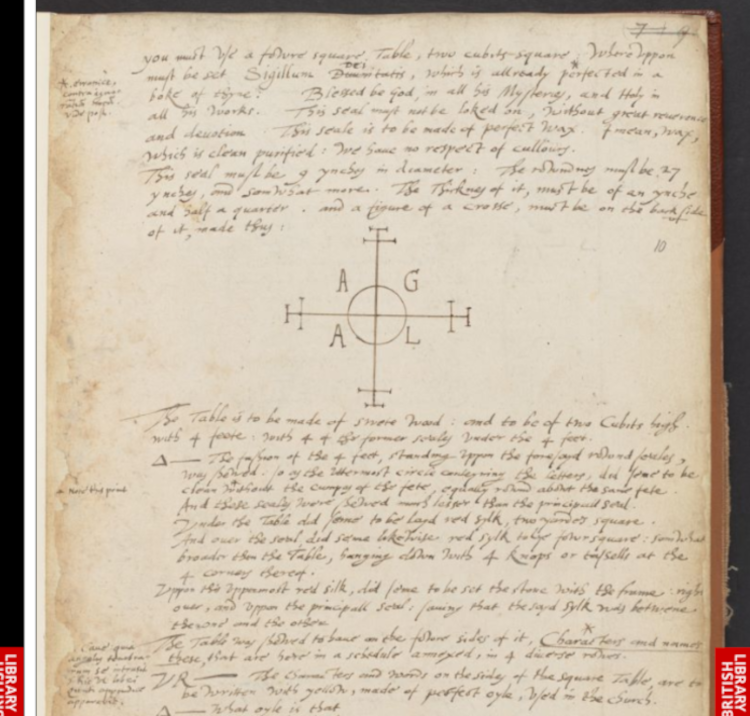 7 9
you must use a fowre square Table, two cubits square: Whereuppon
must be set Sigillum Divinitatis, which is allready perfected in a
DEI
boke of thyne: Blessed be God, in all his Mysteries, and Holy in
all his works. This seal must not be loked on, without great reverence
and devotion. This seale is to be made of perfect wax. I mean, wax,
which is clean purified: we have no respect of cullours.
This seal must be 9 ynches in diameter: The rowndnes must be 27
ynches, and somwhat more. The Thicknes of it, must be of an ynche
and half a quarter. and a figure of a crosse, must be on the back side
of it, made thus:
10
A G
A L
The Table is to be made of swete wood: and to be of two Cubits high
with 4 feete: with 4 of the former seales under the 4 feet.
Δ — The fashion of the 4 feet, standing uppon the foresayd rownd seales,
was shewed: so as the uttermost circle conteyning the letters, did seme to be
clean without the cumpas of the fete, equally rownd abowt the same fete.
And these seales were shewed much lesser than the principall seal.
Under the Table did seme to be layd red sylk, two yardes square.
And over the seal did seme likewise red sylk to lye fowrsquare: somwhat
broader then the Table, hanging down with 4 knops or tassells at the
4 corners therof.
Uppon this uppermost red silk, did seme to be set the stone with the frame: right
over, and uppon the principall seal: saving that the sayd sylk was betwene
the one and the other.
The Table was shewed to have on the fowre sides of it, Characters and names
these, that are here in a schedule annexed, in 4 diverse rowes.
UR — The characters and words on the sides of the square Table, are to
be written with yellow, made of perfect oyle, used in the Church.
Δ — What oyle is that
Note this point
LIBRARY
BRITISH